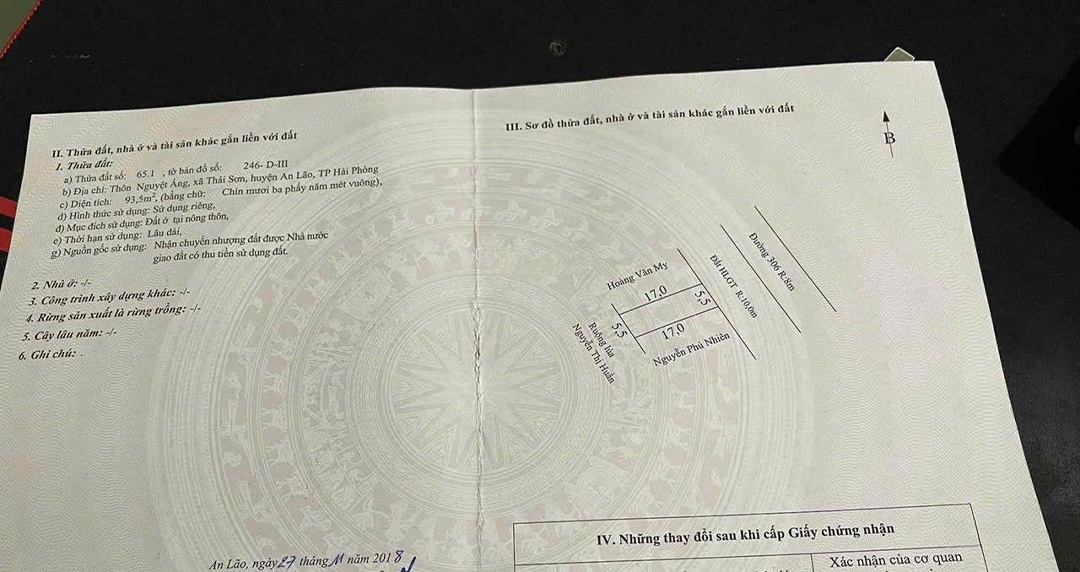 II. Thửa đất, nhà ở và tài sản khác gắn liền với đất
1. Thửa đất:
a) Thửa đất số: 65.1 , tờ bản đồ số: 246- D-III
b) Địa chỉ: Thôn Nguyệt Áng, xã Thái Sơn, huyện An Lão, TP Hải Phòng
c) Diện tích: 93,5m², (bằng chữ: Chín mươi ba phẩy năm mét vuông),
d) Hình thức sử dụng: Sử dụng riêng,
đ) Mục đích sử dụng: Đất ở tại nông thôn,
e) Thời hạn sử dụng: Lâu dài,
g) Nguồn gốc sử dụng: Nhận chuyển nhượng đất được Nhà nước
giao đất có thu tiền sử dụng đất.
2. Nhà ở: -/-
3. Công trình xây dựng khác: -/-
4. Rừng sản xuất là rừng trồng: -/-
5. Cây lâu năm: -/-
6. Ghi chú: .
An Lão, ngày 27 tháng 11 năm 2018
III. Sơ đồ thửa đất, nhà ở và tài sản khác gắn liền với đất
B
Đường 306 R:8m
Đất HLGT R:10,0m
Hoàng Văn My
17,0
5,5
5,5
17,0
Nguyễn Phú Nhiên
Ruộng lúa
Nguyễn Thị Huần
IV. Những thay đổi sau khi cấp Giấy chứng nhận
Xác nhận của cơ quan